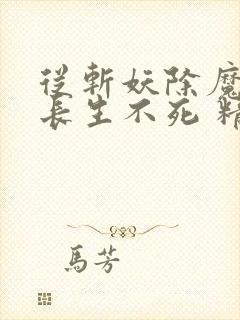 從斬妖除魔
長生不死 精
馬芳